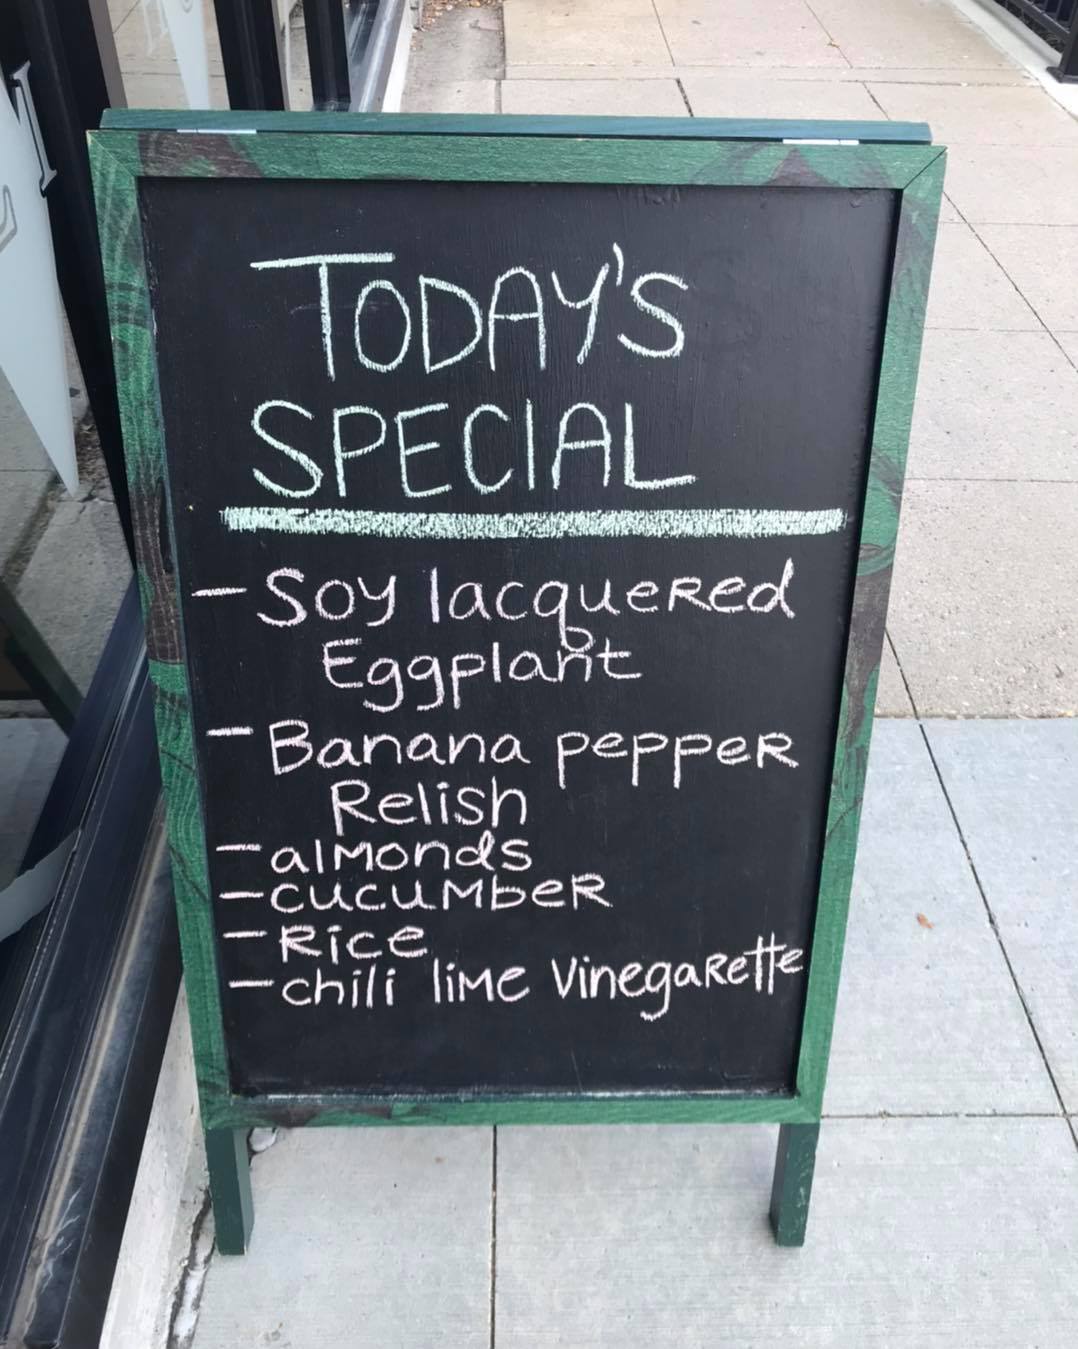 TODAY'S
SPECIAL
- Soy lacquered
Eggplant
- Banana pepper
Relish
- almonds
- cucumber
- Rice
- chili lime Vinegarette